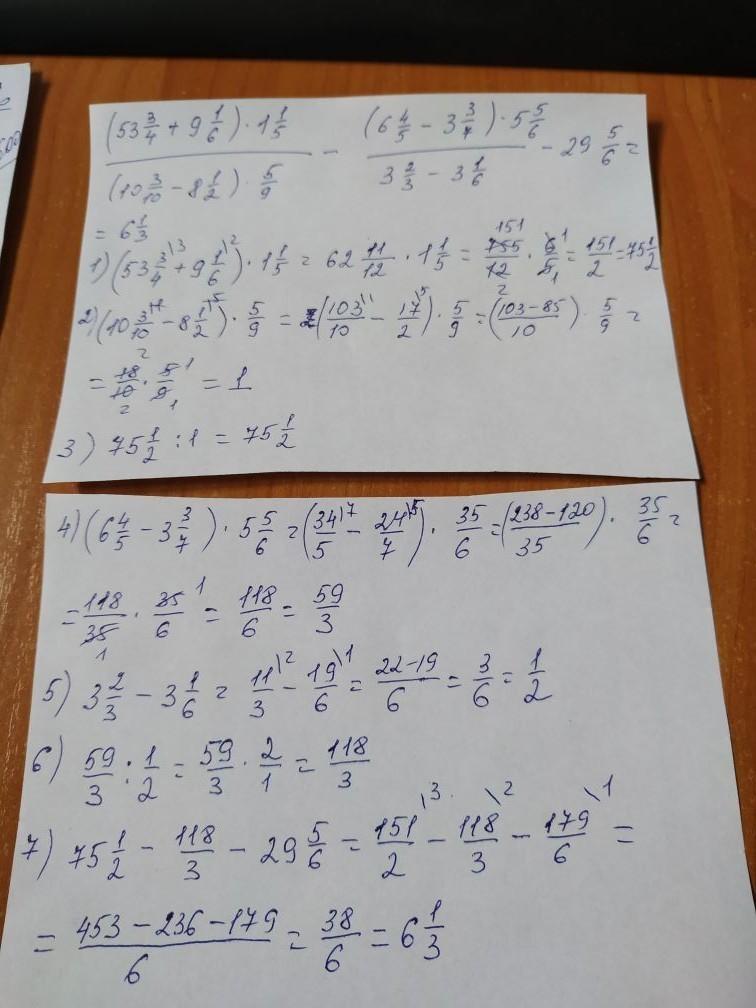 (53 3/4 + 9 1/6) · 1 1/5 / (10 3/10 − 8 1/2) · 5/9 − (6 4/5 − 3 3/7) · 5 5/6 / 3 2/3 − 3 1/6 − 29 5/6 =
= 6 1/3
1) (53 3/4 \3 + 9 1/6 \2) · 1 1/5 = 62 11/12 · 1 1/5 = 755 151/12 2 · 6 1/5 1 = 151/2 = 75 1/2
2) (10 3/10 \1 − 8 1/2 \5) · 5/9 = (103/10 \1 − 17/2 \5) · 5/9 = (103−85/10) · 5/9 =
= 18 2/10 2 · 5 1/9 1 = 1
3) 75 1/2 : 1 = 75 1/2
4) (6 4/5 − 3 3/7) · 5 5/6 = (34/5 \7 − 24/7 \5) · 35/6 = (238−120/35) · 35/6 =
= 118/35 1 · 35 1/6 = 118/6 = 59/3
5) 3 2/3 − 3 1/6 = 11/3 \2 − 19/6 \1 = 22−19/6 = 3/6 = 1/2
6) 59/3 : 1/2 = 59/3 · 2/1 = 118/3
7) 75 1/2 − 118/3 − 29 5/6 = 151/2 \3 − 118/3 \2 − 179/6 \1 =
= 453−236−179/6 = 38/6 = 6 1/3